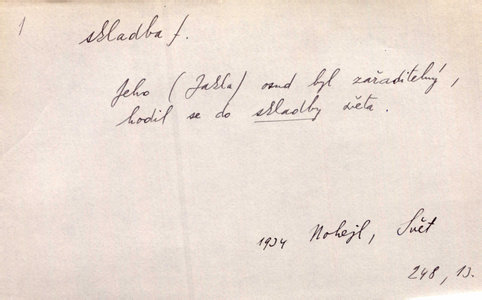 1
skladba f.
Jeho (Jakla) osud byl zařaditelný,
hodil se do skladby světa.
1934 Nohejl, Svět
248, 13.